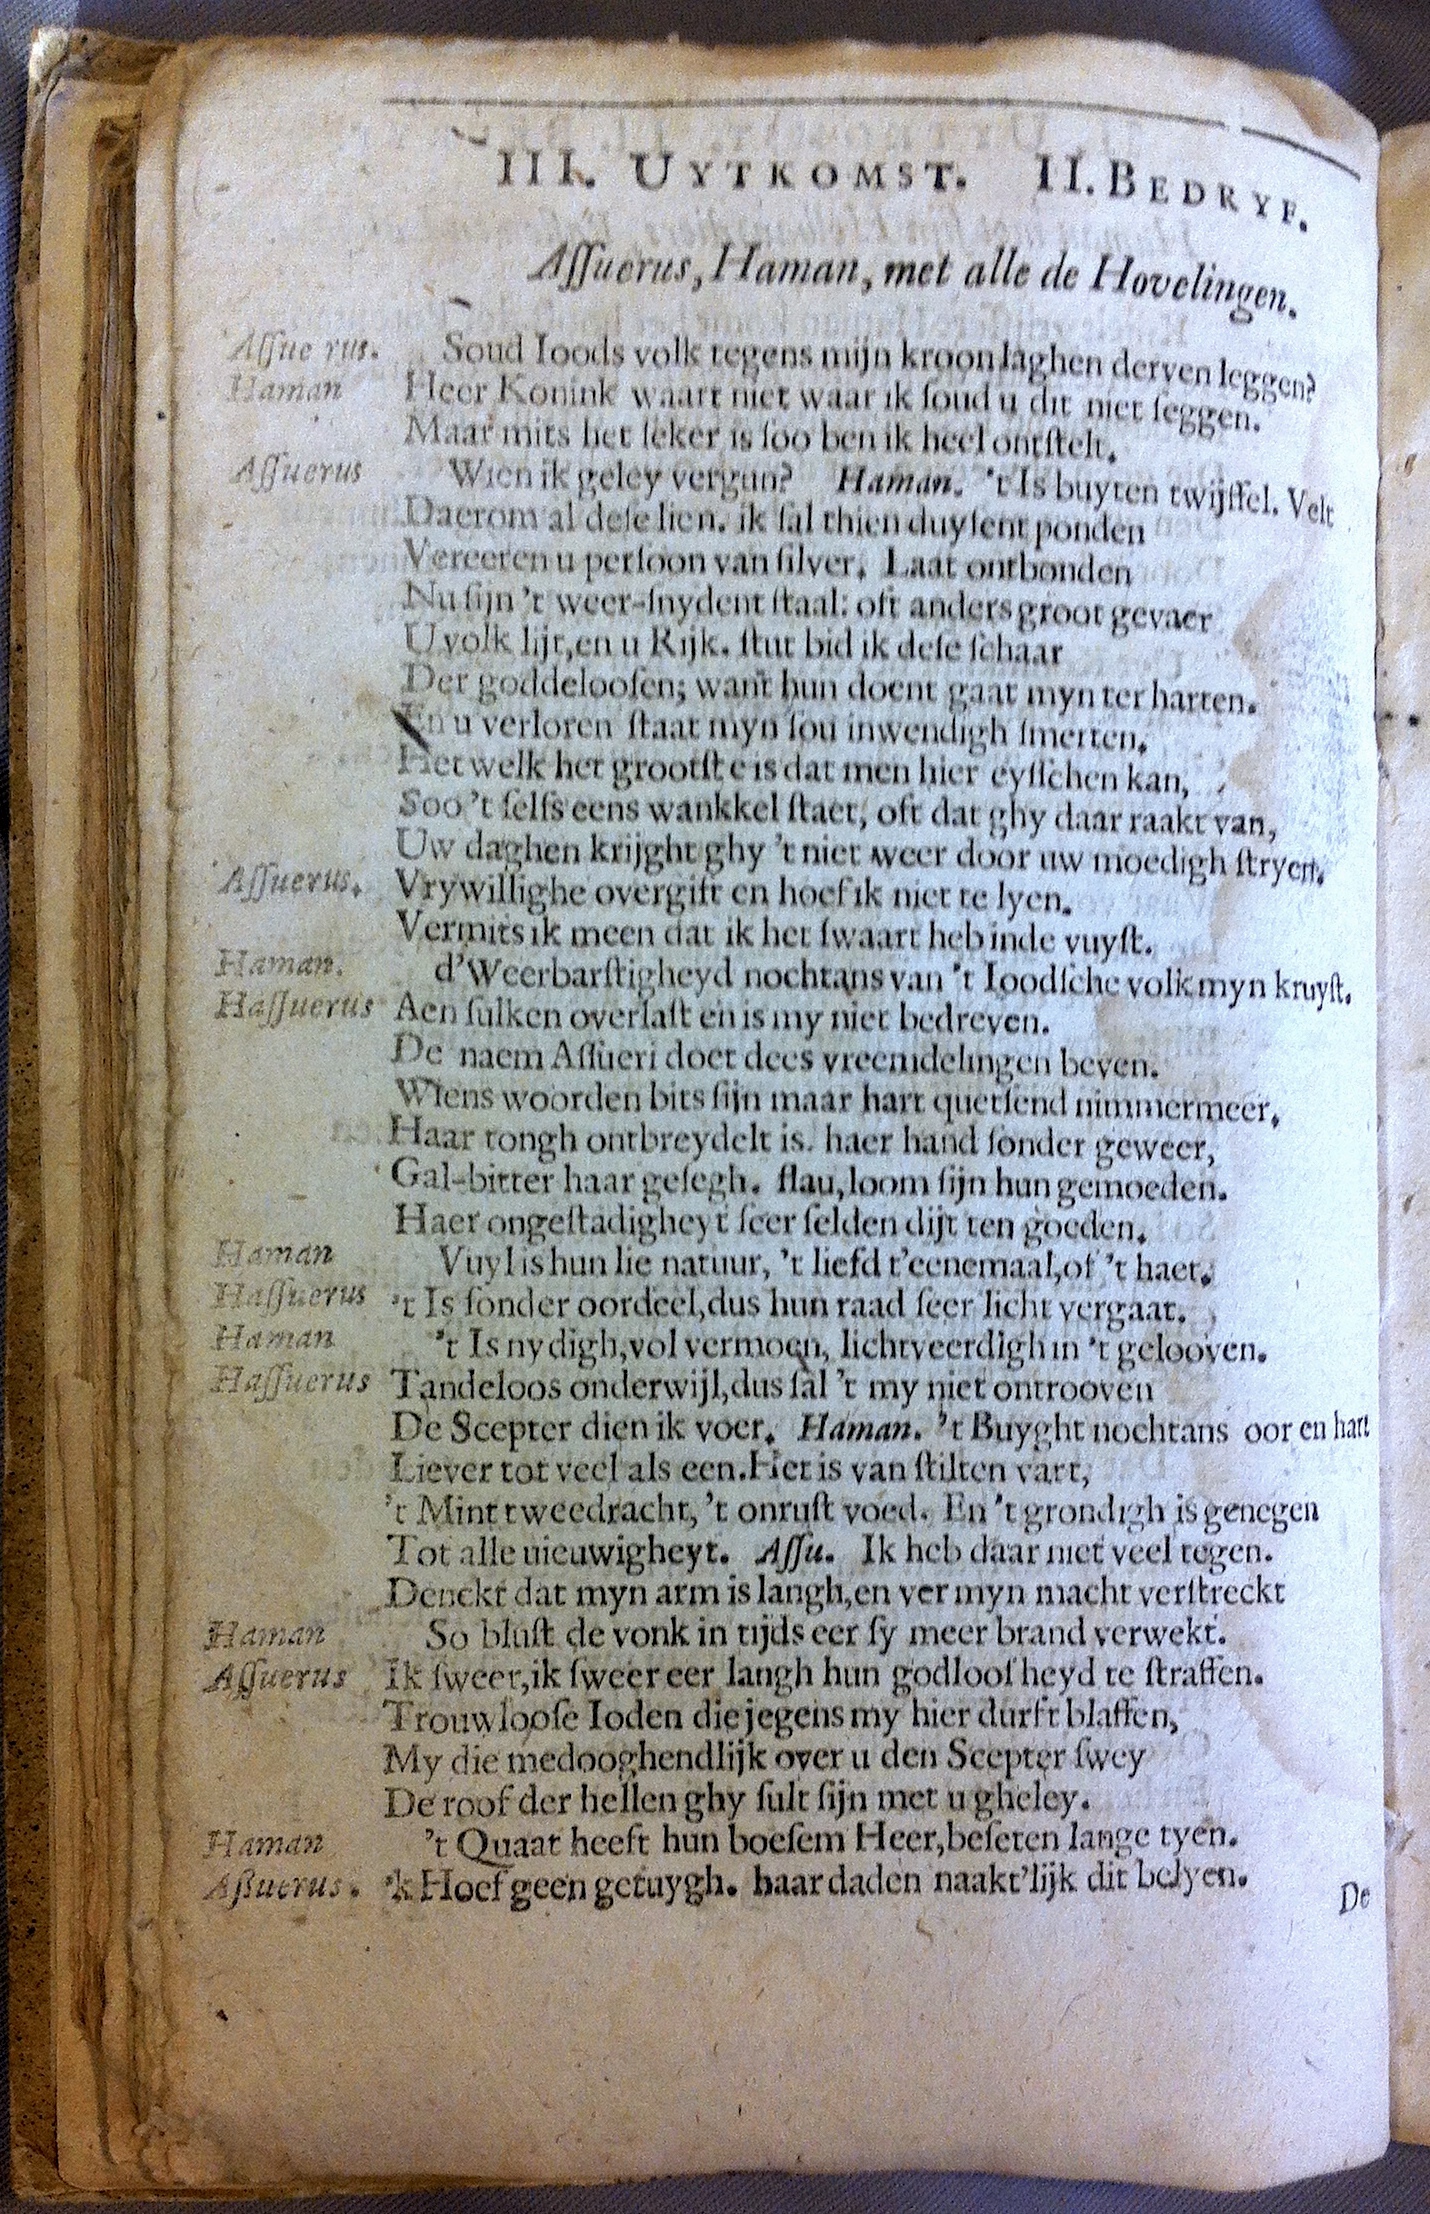 III. UYTKOMST. II. BEDRYF.
Aſſuerus, Haman, met alle de Hovelingen.
Aſſue rus. Soud Ioods volk tegens mijn kroon laghen derven leggen?
Haman Heer Konink waart niet waar ik ſoud u dit niet ſeggen.
Maar mits het ſeker is ſoo ben ik heel ontſtelt.
Aſſuerus Wien ik geley vergun? Haman. 't Is buyten twijffel. Velt
Daerom al deſe lien. ik ſal thien duyſent ponden
Vereeren u perſoon van ſilver. Laat ontbonden
Nu ſijn 't weer-ſnydent ſtaal: oft anders groot gevaer
U volk lijt, en u Rijk. ſtut bid ik deſe ſchaar
Der goddelooſen; want hun doent gaat myn ter harten.
En u verloren ſtaat myn ſou inwendigh ſmerten.
Het welk het grootſte is dat men hier eyſſchen kan,
Soo 't ſelfs eens wankkel ſtaet, oft dat ghy daar raakt van,
Uw daghen krijght ghy 't niet weer door uw moedigh ſtryen.
Aſſuerus. Vrywillighe overgift en hoef ik niet te lyen.
Vermits ik meen dat ik het ſwaart heb inde vuyſt.
Haman. d'Weerbarſtigheyd nochtans van 't Ioodſche volk myn kruyſt.
Haſſuerus Aen ſulken overlaſt en is my niet bedreven.
De naem Aſſueri doet dees vreemdelingen beven.
Wiens woorden bits ſijn maar hart quetſend nimmermeer.
Haar tongh ontbreydelt is. haer hand ſonder geweer,
Gal-bitter haar geſegh. flau, loom ſijn hun gemoeden.
Haer ongeſtadigheyt ſeer ſelden dijt ten goeden.
Haman Vuyl is hun lie natuur, 't liefd t'eenemaal, of 't haet.
Haſſuerus 't Is ſonder oordeel, dus hun raad ſeer licht vergaat.
Haman 't Is nydigh, vol vermoen, lichtveerdigh in 't gelooven.
Haſſuerus Tandeloos onderwijl, dus ſal 't my niet ontrooven
De Scepter dien ik voer. Haman. 't Buyght nochtans oor en hart
Liever tot veel als een. Het is van ſtilten vart,
't Mint tweedracht, 't onruſt voed. En 't grondigh is genegen
Tot alle nieuwigheyt. Aſſu. Ik heb daar niet veel tegen.
Denckt dat myn arm is langh, en ver myn macht verſtreckt
Haman So bluſt de vonk in tijds eer ſy meer brand verwekt.
Aſſuerus Ik ſweer, ik ſweer eer langh hun godloosheyd te ſtraffen.
Trouwlooſe Ioden die jegens my hier durft blaffen,
My die medooghendlijk over u den Scepter ſwey
De roof der hellen ghy ſult ſijn met u gheley.
Haman 't Quaat heeft hun boeſem Heer, beſeten lange tyen.
Aßuerus. 'k Hoef geen getuygh. haar daden naakt'lijk dit belyen.
De